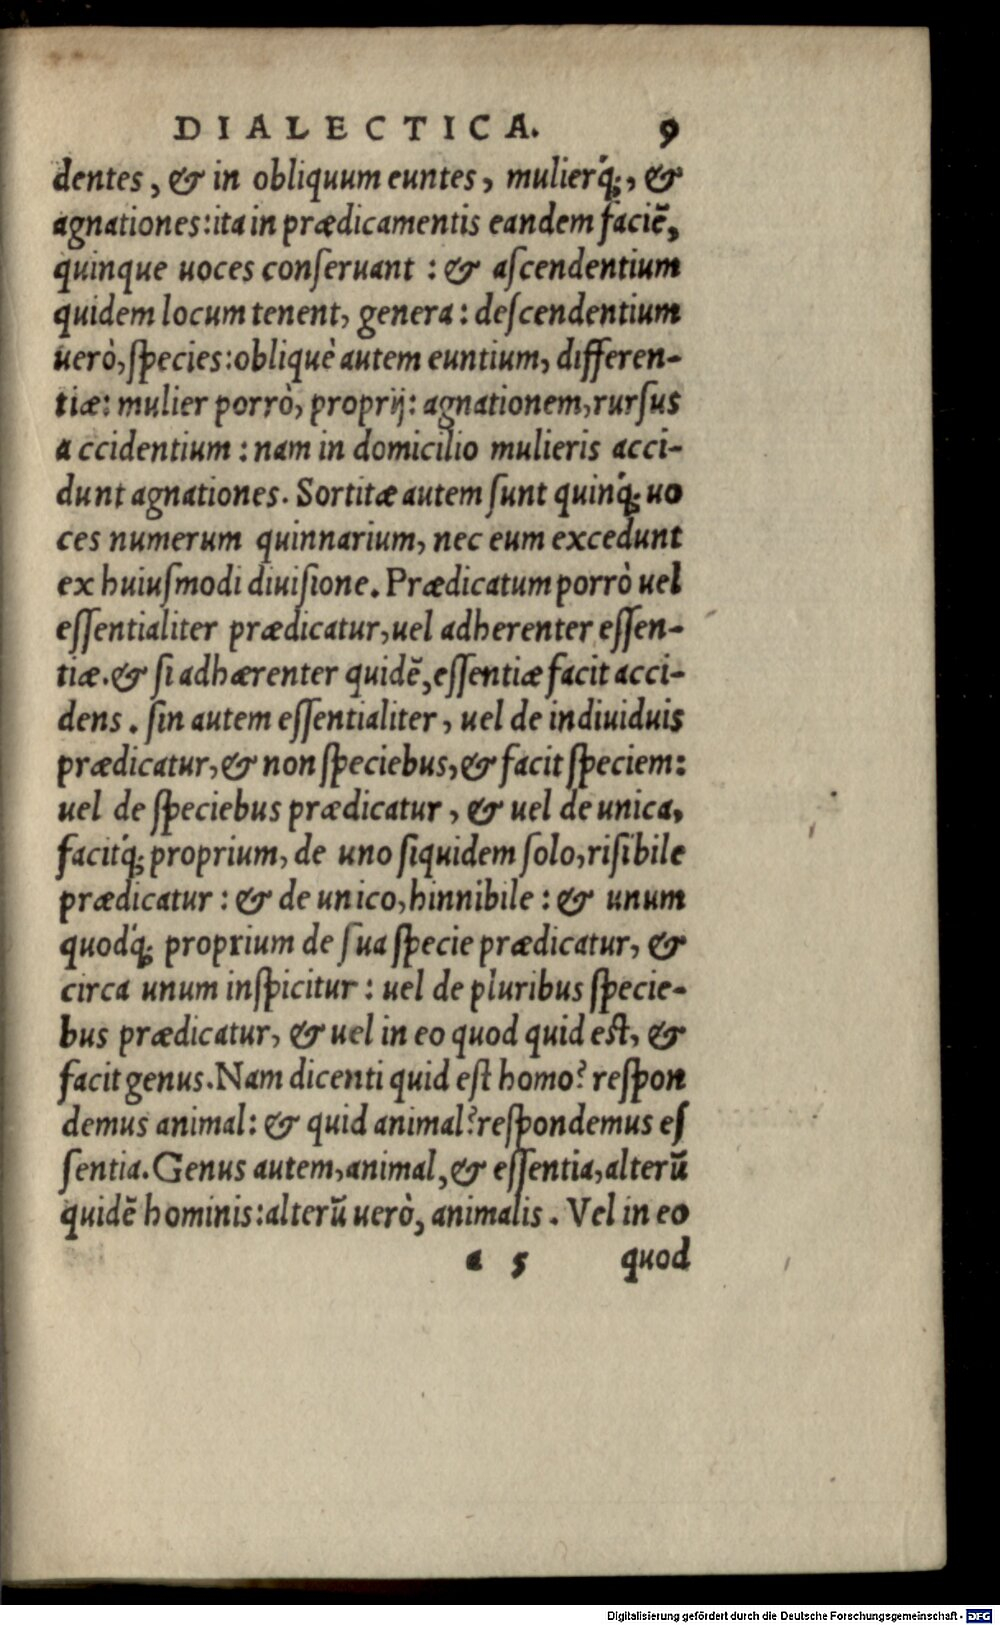 DIALECTICA. 9
dentes, & in obliquum euntes, mulierq́;, &
agnationes: ita in prædicamentis eandem faciẽ,
quinque uoces conſeruant : & aſcendentium
quidem locum tenent, genera: deſcendentium
uerò, ſpecies: obliquè autem euntium, differen-
tiæ: mulier porrò, proprij: agnationem, rurſus
a ccidentium : nam in domicilio mulieris acci-
dunt agnationes. Sortitæ autem ſunt quinq́; uo
ces numerum quinnarium, nec eum excedunt
ex huiuſmodi diuiſione. Prædicatum porrò uel
eſſentialiter prædicatur, uel adherenter eſſen-
tiæ. & ſi adhærenter quidẽ, eſſentiæ facit acci-
dens. ſin autem eſſentialiter, uel de indiuiduis
prædicatur, & non ſpeciebus, & facit ſpeciem:
uel de ſpeciebus prædicatur, & uel de unica,
facitq́; proprium, de uno ſiquidem ſolo, riſibile
prædicatur : & de unico, hinnibile : & unum
quodq́; proprium de ſua ſpecie prædicatur, &
circa unum inſpicitur : uel de pluribus ſpecie-
bus prædicatur, & uel in eo quod quid eſt, &
facit genus. Nam dicenti quid eſt homo? reſpon
demus animal: & quid animal? reſpondemus eſ
ſentia. Genus autem, animal, & eſſentia, alterũ
quidẽ hominis: alterũ uerò, animalis. Vel in eo
a 5 quod
Digitalisierung gefördert durch die Deutsche Forschungsgemeinschaft - DFG